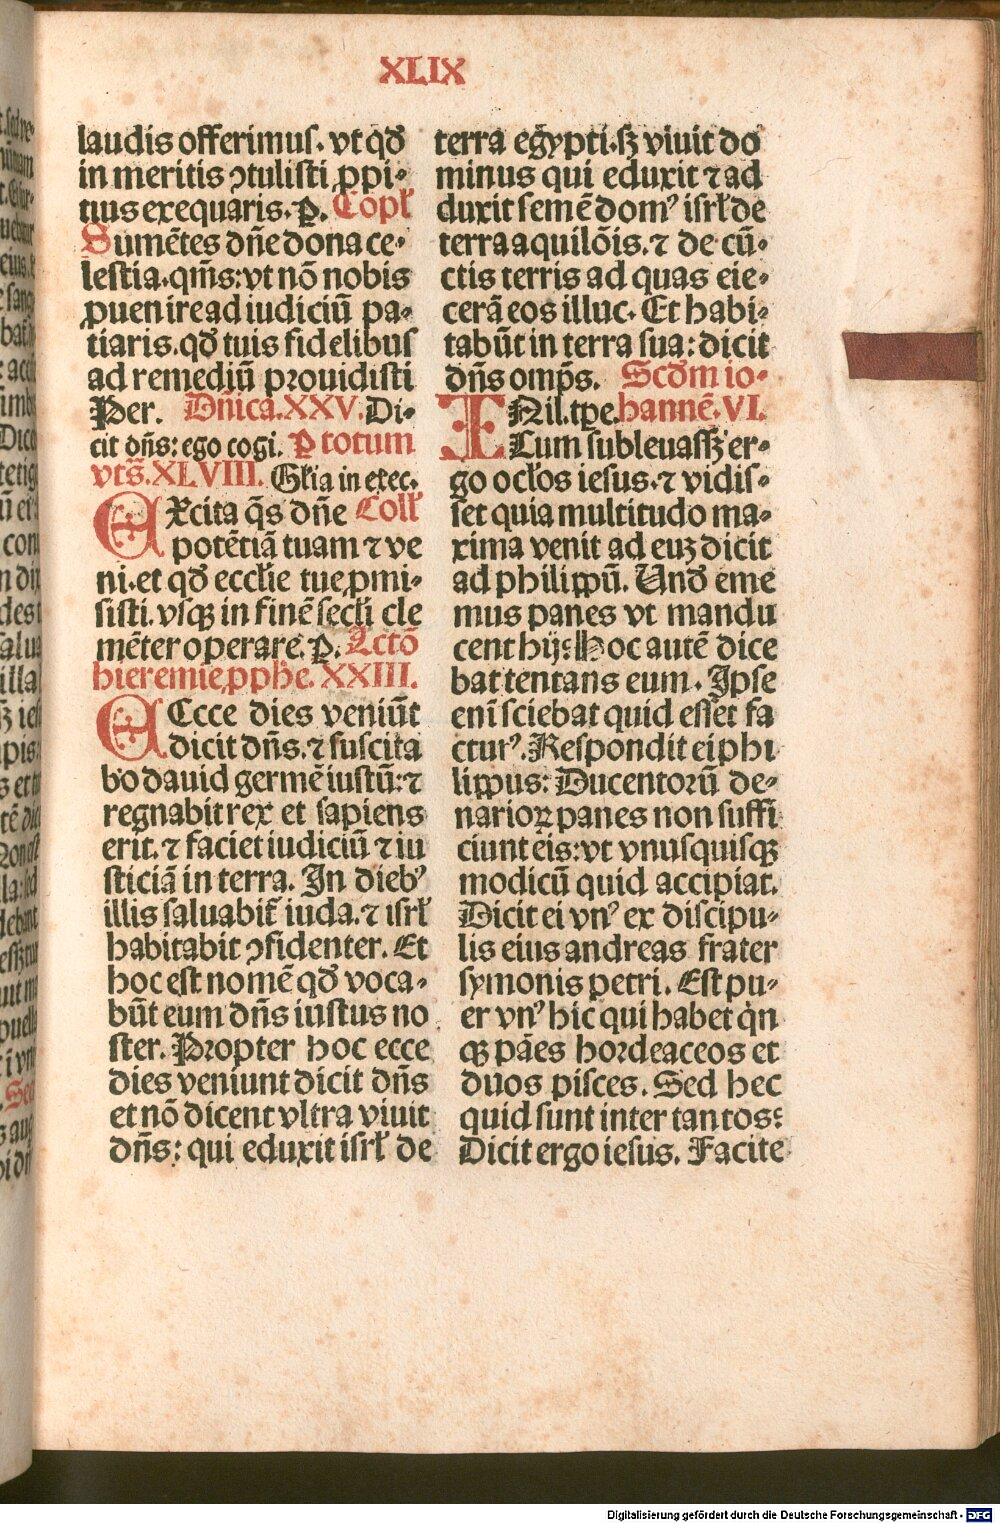 XLIX
laudis offerimus. vt qđ
in meritis ꝯtulisti ꝓpi-
tius exequaris. P. Copł
Sumētes dñe dona ce-
lestia. qm̄s: vt nō nobis
ꝓueniread iudiciū pa-
tiaris. qđ tuis fidelibus
ad remediū prouidisti
Per. Dñica. XXV. Di-
cit dñs: ego cogi. P totum
vts̄. XLVIII. Głia in exec.
EXcita q̄s dñe Coll̄
potētiā tuam ⁊ ve
ni. et qđ eccłie tue ꝓmi-
sisti. vsqꝫ in finē secłi cle
mēter operare. P. Actō
hieremie ꝓphe. XXIII.
ECce dies veniūt
dicit dñs. ⁊ suscita
bo dauid germē iustū: ⁊
regnabit rex et sapiens
erit. ⁊ faciet iudiciū ⁊ iu
sticiā in terra. In diebꝰ
illis saluabit̄ iuda. ⁊ isrł
habitabit ꝯfidenter. Et
hoc est nomē qđ voca-
būt eum dñs iustus no
ster. Propter hoc ecce
dies veniunt dicit dñs
et nō dicent vltra viuit
dñs: qui eduxit isrł de
terra egypti. sꝫ viuit do
minus qui eduxit ⁊ ad
duxit semē domꝰ isrł de
terra aquilōis. ⁊ de cū-
ctis terris ad quas eie-
cerā eos illuc. Et habi-
tabūt in terra sua: dicit
dñs omp̄s. Scđm io-
INil. tꝑe. hannē. VI.
Cum subleuassꝫ er-
go ocłos iesus. ⁊ vidis-
set quia multitudo ma-
xima venit ad euꝫ dicit
ad philippū. Unđ eme
mus panes vt mandu
cent hij: Hoc autē dice
bat tentans eum. Ipse
enī sciebat quid esset fa
cturꝰ. Respondit ei phi
lippus: Ducentorū de-
narioꝝ panes non suffi
ciunt eis: vt vnusquisqꝫ
modicū quid accipiat.
Dicit ei vnꝰ ex discipu-
lis eius andreas frater
symonis petri. Est pu-
er vnꝰ hic qui habet q̇n
qꝫ pāes hordeaceos et
duos pisces. Sed hec
quid sunt inter tantos:
Dicit ergo iesus. Facite
Digitalisierung gefördert durch die Deutsche Forschungsgemeinschaft - DFG